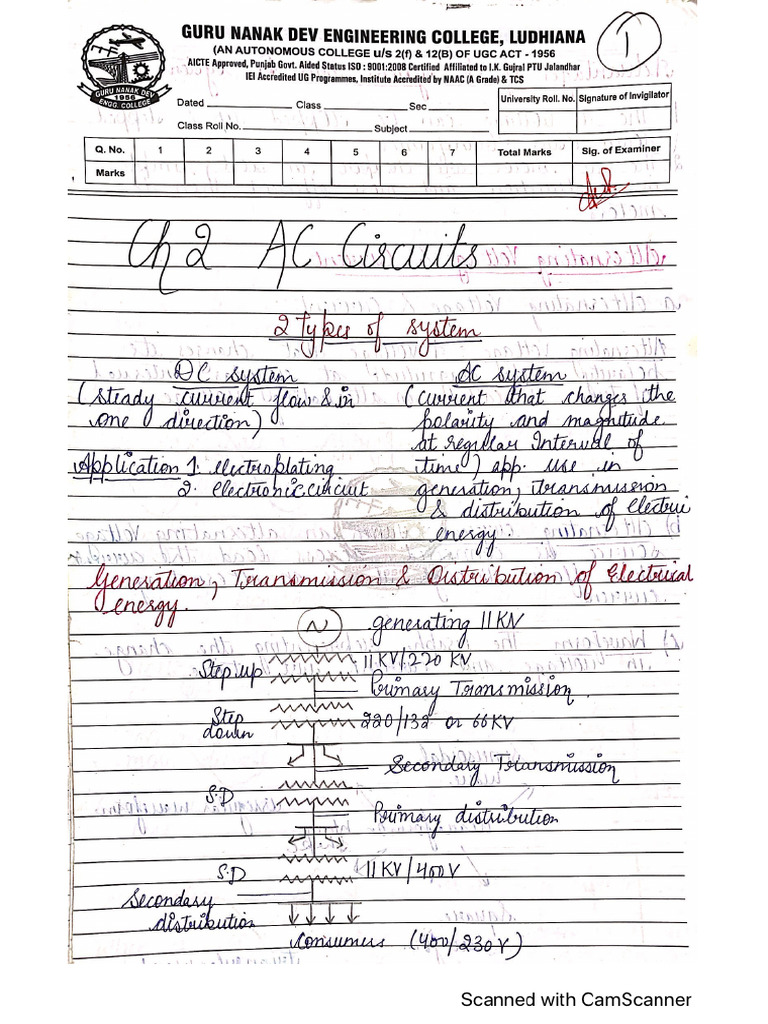 GURU NANAK DEV ENGINEERING COLLEGE, LUDHIANA
(AN AUTONOMOUS COLLEGE u/s 2(f) & 12(B) OF UGC ACT - 1956
AICTE Approved, Punjab Govt. Aided Status ISO : 9001:2008 Certified Affiliated to I.K. Gujral PTU Jalandhar
IEI Accredited UG Programmes, Institute Accredited by NAAC (A Grade) & TCS
GURU NANAK DEV
1956
ENGG. COLLEGE
1
Dated Class Sec
University Roll. No. Signature of Invigilator
Class Roll No. Subject
Q. No. 1 2 3 4 5 6 7 Total Marks Sig. of Examiner
Marks
Ch 2 AC Circuits
2 Types of system
DC system
(steady current flow & in
one direction)
Application 1. electroplating
2. electronic circuit
AC system
(current that changes the
polarity and magnitude
at regular Interval of
time) app. use in
generation, transmission
& distribution of electric
energy.
Generation, Transmission & Distribution of Electrical
energy.
N generating 11KV
Step up 11KV/220 KV
Primary Transmission
Step down 220/132 or 66KV
Secondary Transmission
S.D
Primary distribution
S.D 11KV/400V
Secondary
distribution
Consumers (400/230V)
Scanned with CamScanner